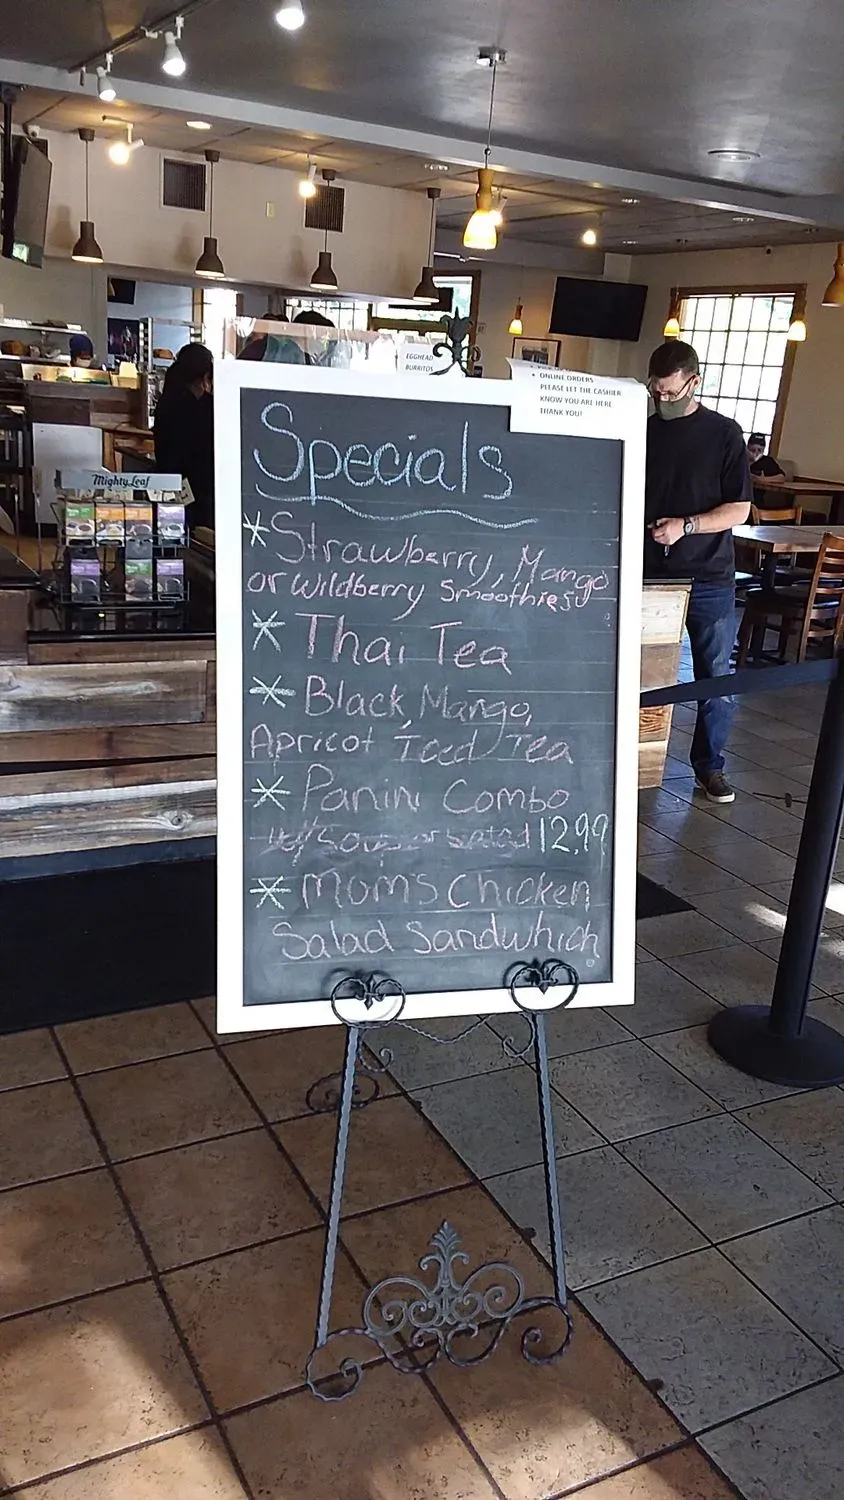 EGGHEAD
BURRITOS
• ONLINE ORDERS
PLEASE LET THE CASHIER
KNOW YOU ARE HERE
THANK YOU!
Mighty Leaf
Specials
* Strawberry, Mango
or Wildberry Smoothies
* Thai Tea
* Black, Mango,
Apricot Iced Tea
* Panini Combo
w/ Soup or Salad 12.99
* Mom's Chicken
Salad Sandwhich